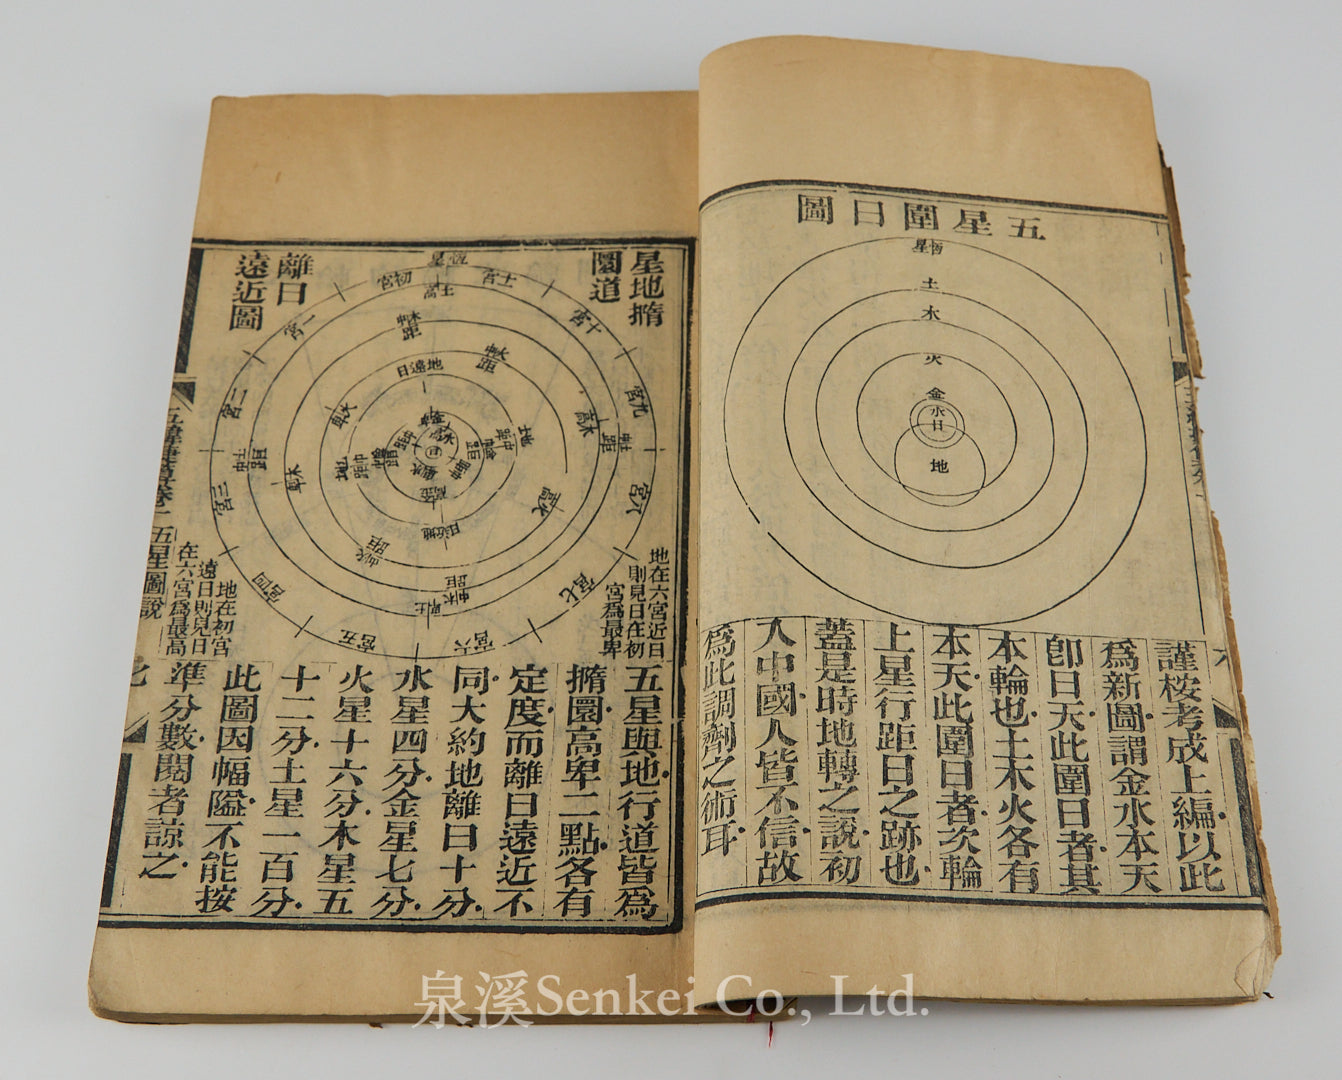 五星圍日圖
恆星
土
木
火
金
水
日
地
謹桉考成上編以此
爲新圖謂金水本天
卽日天此圍日者其
本輪也土木火各有
本天此圍日者次輪
上星行距日之跡也
蓋是時地轉之說初
入中國人皆不信故
爲此調劑之術耳
星地橢
圜道
離日
遠近圖
恆星
初宮
一宮
二宮
三宮
四宮
五宮
六宮
七宮
九宮
十宮
土高
地遠日
地近日
日
地在六宮近日
則見日在初
宮爲最卑
地在初宮
遠日則見日
在六宮爲最高
五星與地行道皆爲
橢圜高卑二點各有
定度而離日遠近不
同大約地離日十分
水星四分金星七分
火星十六分木星五
十二分土星一百分
此圖因幅隘不能按
準分數閱者諒之
五星圖說
泉溪Senkei Co., Ltd.